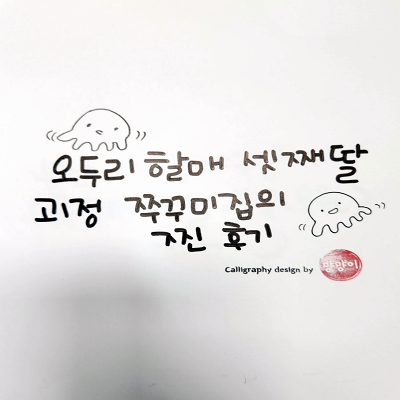 오두리 할매 셋째딸
괴정 쭈꾸미집의
찐 후기
Calligraphy design by